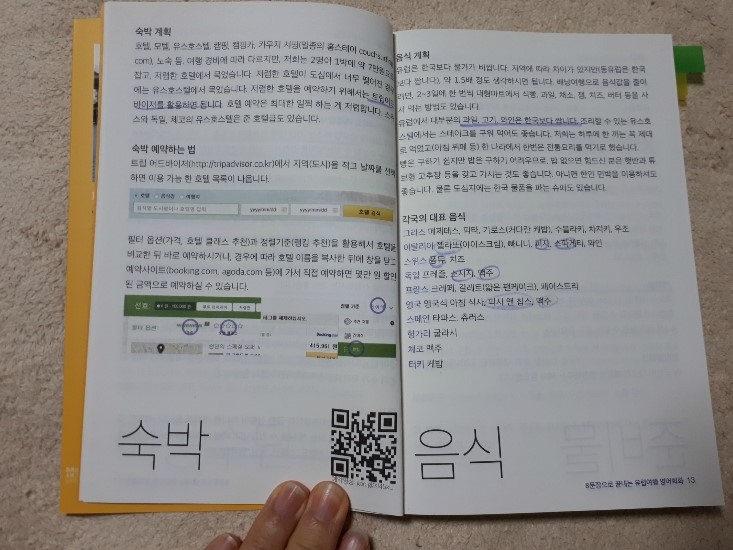 숙박 계획
호텔, 모텔, 유스호스텔, 캠핑, 캠핑카, 카우치 서핑(일종의 홈스테이 couchsurfing.
com), 노숙 등. 여행 경비에 따라 다르지만, 저희는 2명이 1박에 약 7만원
잡고, 저렴한 호텔에서 묵었습니다. 저렴한 호텔이 도심에서 너무 떨어진
에는 유스호스텔에서 묵었습니다. 저렴한 호텔을 예약하기 위해서는 트립어드
바이저를 활용하면 됩니다. 호텔 예약은 최대한 일찍 하는 게 저렴합니다.
스와 독일, 체코의 유스호스텔은 준 호텔급도 있습니다.
숙박 예약하는 법
트립 어드바이저(http://tripadvisor.co.kr)에서 지역(도시)을 적고 날짜를 선택
하면 이용 가능 한 호텔 목록이 나옵니다.
호텔 음식점 여행지
yyyy/mm/dd yyyy/mm/dd 호텔 검색
필터 옵션(가격, 호텔 클래스 추천)과 정렬기준(랭킹 추천)을 활용해서 호텔을
비교한 뒤 바로 예약하시거나, 경우에 따라 호텔 이름을 복사한 뒤에 창을 닫고
예약사이트(booking.com, agoda.com 등)에 가서 직접 예약하면 몇만 원 할인
된 금액으로 예약하실 수 있습니다.
선호:
필터 옵션:
숙박
음식 계획
유럽은 한국보다 물가가 비쌉니다. 지역에 따라 차이가 있지만(동유럽은 한국
보다 쌉니다), 약 1.5배 정도 생각하시면 됩니다. 배낭여행으로 음식값을 줄이
려면, 2~3일에 한 번씩 대형마트에서 식빵, 과일, 채소, 잼, 치즈, 버터 등을 사
서 먹는 방법도 있습니다.
유럽에서 대부분의 과일, 고기, 와인은 한국보다 쌉니다. 조리할 수 있는 유스호
스텔에서는 스테이크를 구워 먹어도 좋습니다. 저희는 하루에 한 끼는 꼭 제대
로 먹었고(아침 뷔페 등) 한 나라에서 한번은 전통요리를 먹기로 했습니다.
빵은 구하기 쉽지만 밥은 구하기 어려우므로, 밥 없으면 힘드신 분은 햇반과 튜
브형 고추장 등을 갖고 가시는 것도 좋습니다. 아니면 한인 민박을 이용하셔도
좋습니다. 물론 도심지에는 한국 물품을 파는 슈퍼도 있습니다.
각국의 대표 음식
그리스 메제데스, 피타, 기로스(커다란 케밥), 수블라키, 차지키, 우조
이탈리아 젤라또(아이스크림), 빠니니, 피자, 스파게티, 와인
스위스 퐁듀, 치즈
독일 프레즐, 소시지, 맥주
프랑스 크레페, 갈레트(얇은 팬케이크), 페이스트리
영국 영국식 아침 식사, 피시 앤 칩스, 맥주
스페인 타파스, 츄러스
헝가리 굴라시
체코 맥주
터키 케밥
음식
8문장으로 끝내는 유럽여행 영어회화 13